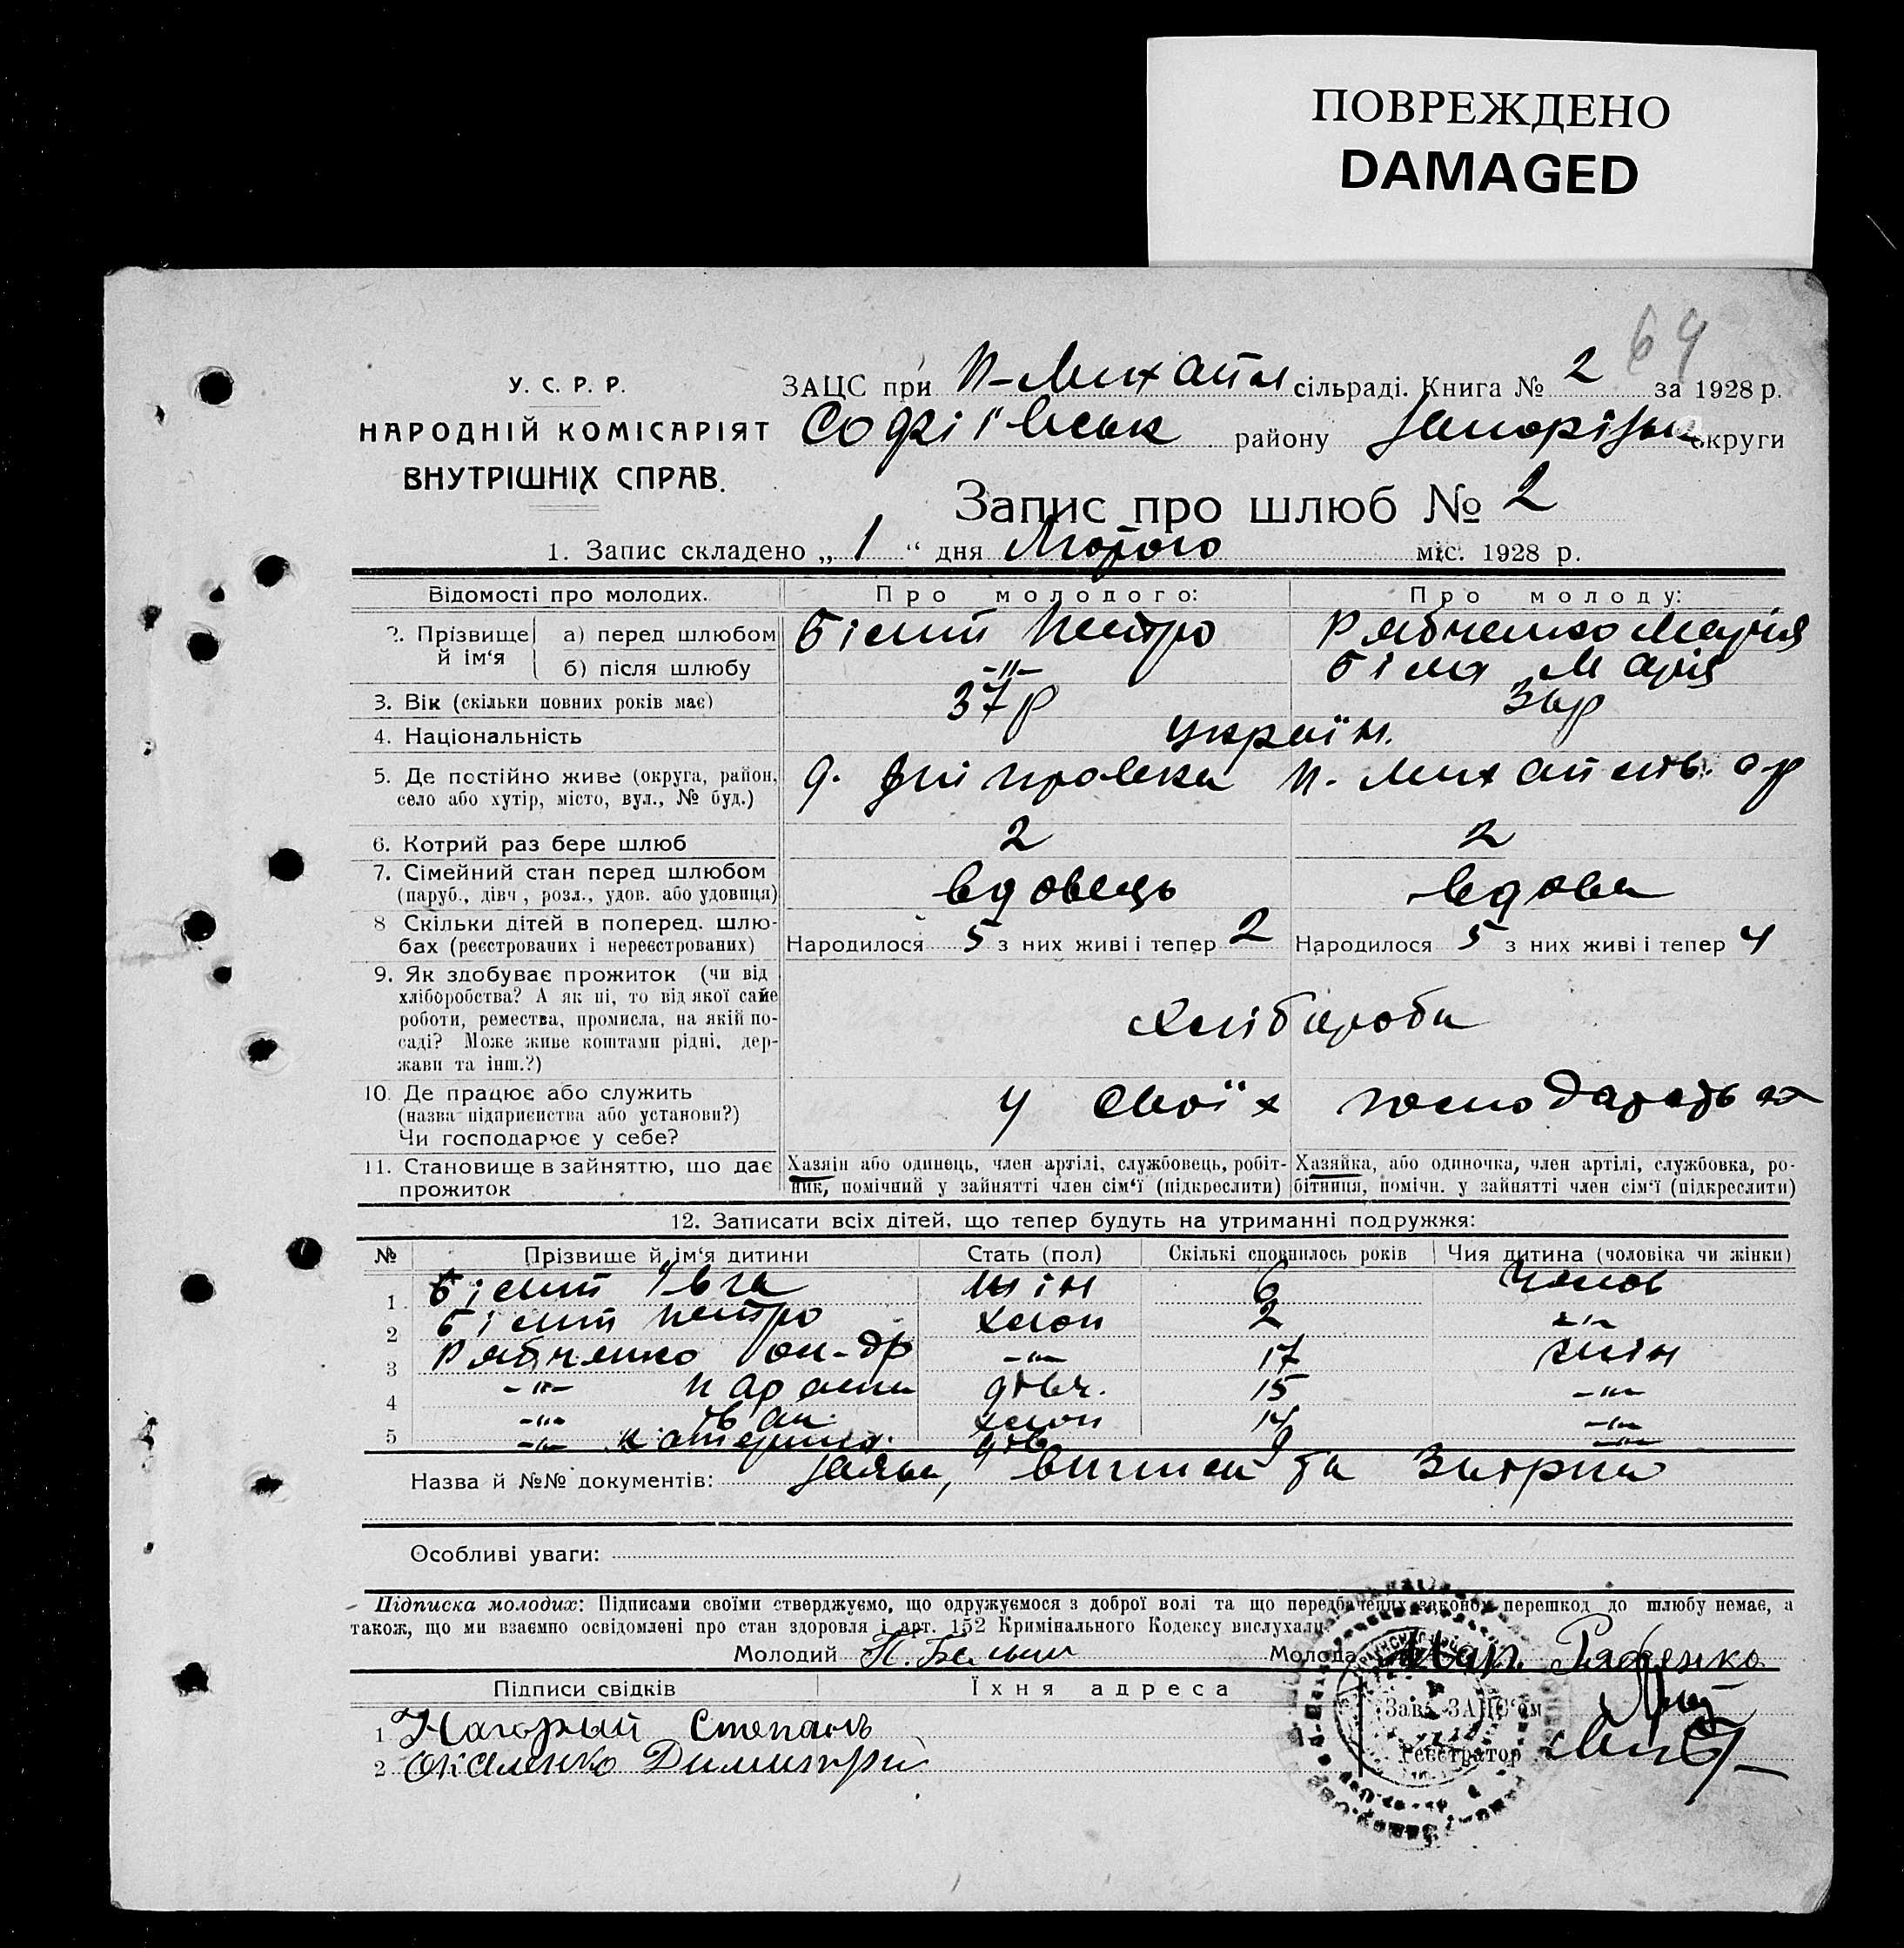 ПОВРЕЖДЕНО
DAMAGED
64
У. С. Р. Р.
НАРОДНІЙ КОМІСАРІЯТ
ВНУТРІШНІХ СПРАВ.
ЗАЦС при Н-Михайл сільраді. Книга № 2 за 1928 р.
Софіївськ району Запорізьк округи
Запис про шлюб № 2
1. Запис складено „ 1 “ дня Лютого міс. 1928 р.
Відомості про молодих. Про молодого: Про молоду:
2. Прізвище й ім‘я а) перед шлюбом Білий Петро Рябченко Марія
б) після шлюбу -"- Біла Марія
3. Вік (скільки повних років має) 37 р
4. Національність Україн.
5. Де постійно живе (округа, район, село або хутір, місто, вул., № буд.) Дніпровка
6. Котрий раз бере шлюб 2 2
7. Сімейний стан перед шлюбом (паруб., дівч., розл., удов. або удовиця) вдовець вдова
8 Скільки дітей в поперед. шлюбах (реєстрованих і нереєстрованих) Народилося 5 з них живі і тепер 2 Народилося 5 з них живі і тепер 4
9. Як здобуває прожиток (чи від
хліборобства? А як ні, то від якої саме
роботи, ремества, промисла, на якій по-
саді? Може живе коштами рідні, дер-
жави та інш.?)
Хлібороби
10. Де працює або служить
(назва підприємства або установи?)
Чи господарює у себе?
У своїх господарствах
11. Становище в зайняттю, що дає прожиток
Хазяїн або одинець, член артілі, службовець, робіт-
ник, помічний у зайнятті член сім‘ї (підкреслити)
Хазяйка, або одиночка, член артілі, службовка, ро-
бітниця, помічн. у зайнятті член сім‘ї (підкреслити)
12. Записати всіх дітей, що тепер будуть на утриманні подружжя:
№ Прізвище й ім‘я дитини Стать (пол) Скількі сповнилось років Чия дитина (чоловіка чи жінки)
1 Білий Ївга жін 6 Чолов
2 Білий Петро хлоп 2 -"-
3 Рябченко Ол-др -"- 17 жін
4 -"- Параск дівч. 15 -"-
5 -"- Іван хлоп 14 -"-
-"- Катерина дівч 9 -"-
Назва й №№ документів: Заява, виписи та
Особливі уваги:
Підписка молодих: Підписами своїми стверджуємо, що одружуємося з доброї волі та що передбачених законом перешкод до шлюбу немає, а
також, що ми взаємно освідомлені про стан здоровля і арт. 152 Кримінального Кодексу вислухали.
Молодий П. Белый Молода Мар. Рябченко
Підписи свідків Їхня адреса
Зав. ЗАЦС‘ом
1 Нагорный Степанъ
Реєстратор
2 Окаленко Димитрий